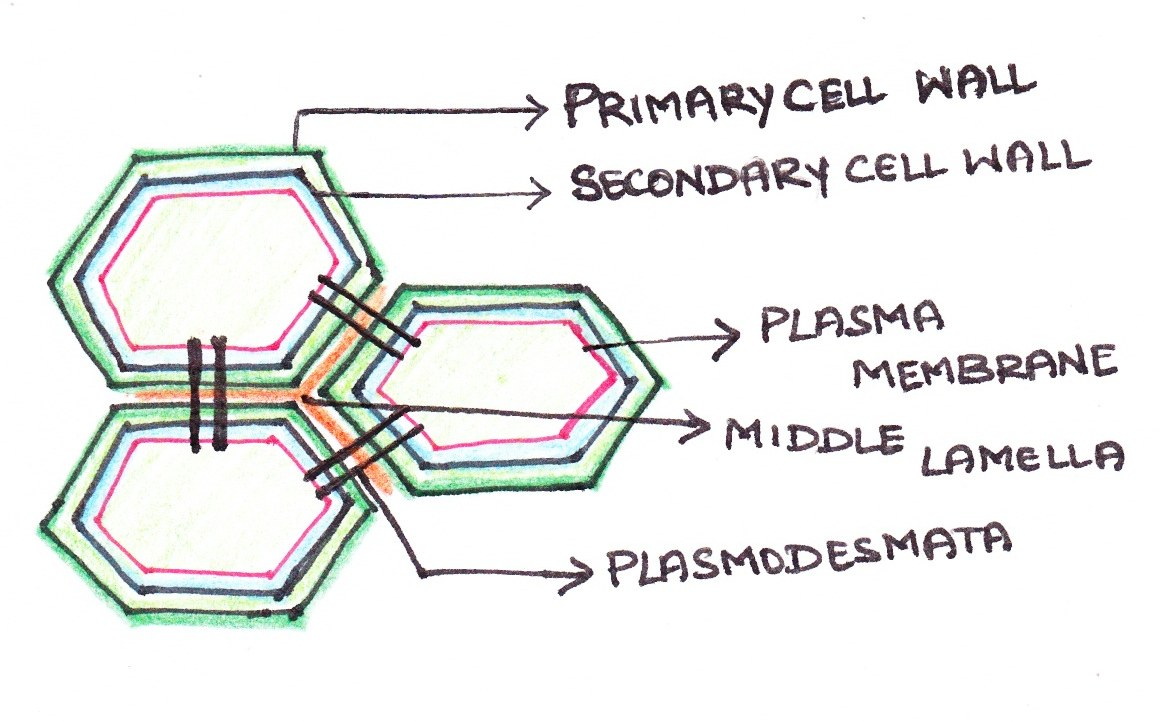 PRIMARY CELL WALL
SECONDARY CELL WALL
PLASMA
MEMBRANE
MIDDLE
LAMELLA
PLASMODESMATA